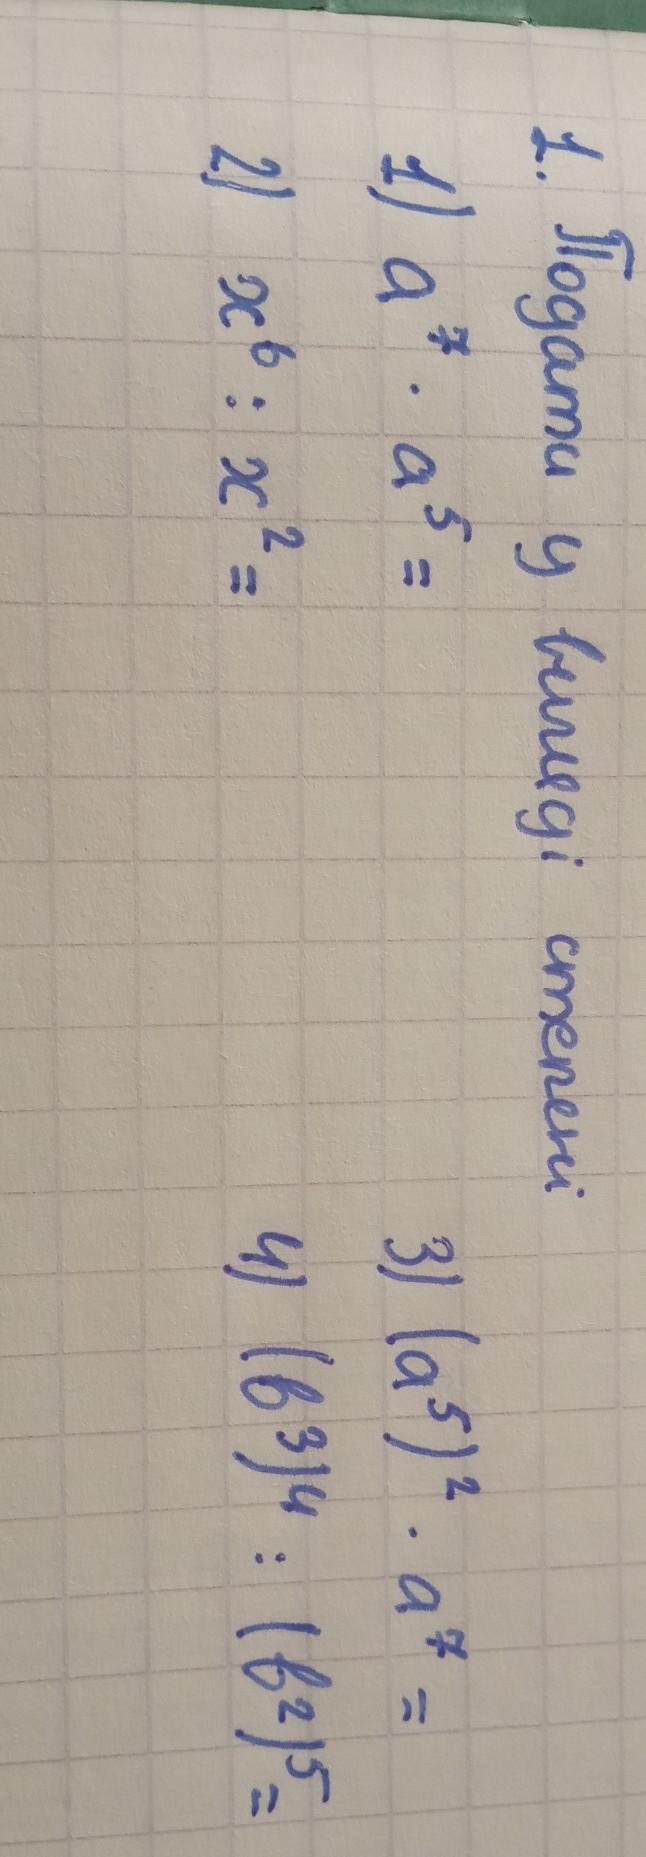 1. Подати у вигляді степені
1) a⁷ · a⁵ =
2) x⁶ : x² =
3) (a⁵)² · a⁷ =
4) (b³)⁴ : (b²)⁵ =